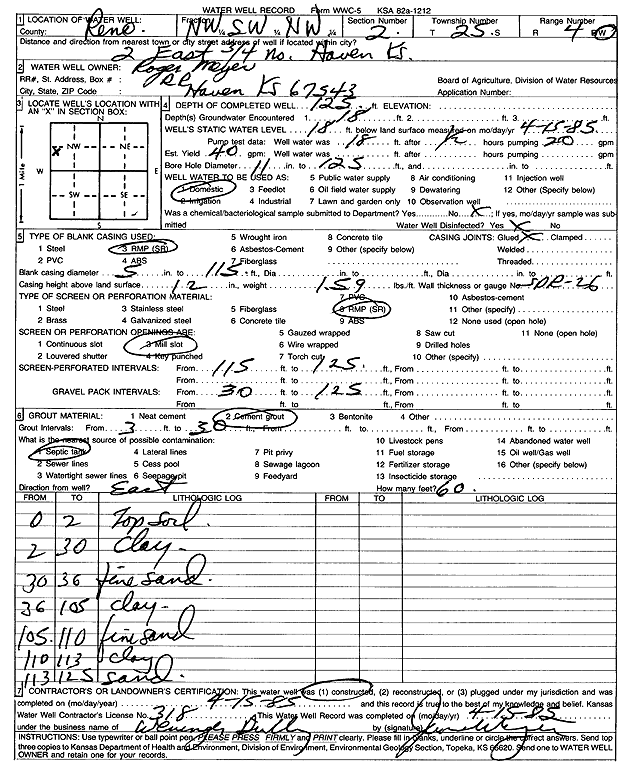 WATER WELL RECORD Form WWC-5 KSA 82a-1212
1 LOCATION OF WATER WELL: Fraction Section Number Township Number Range Number
County: Reno NW ¼ SW ¼ NW ¼ 2 T 25 S R 4 E/W
Distance and direction from nearest town or city street address of well if located within city?
2 East 3/4 no. Haven Ks.
2 WATER WELL OWNER: Roger Meyer
RR#, St. Address, Box # : RR Board of Agriculture, Division of Water Resources
City, State, ZIP Code : Haven KS 67543 Application Number:
3 LOCATE WELL'S LOCATION WITH AN "X" IN SECTION BOX:
N
NW NE
X
W E
SW SE
S
1 Mile
4 DEPTH OF COMPLETED WELL 125 ft. ELEVATION:
Depth(s) Groundwater Encountered 1. 18 ft. 2. ft. 3. ft.
WELL'S STATIC WATER LEVEL 18 ft. below land surface measured on mo/day/yr 4-15-85
Pump test data: Well water was 18 ft. after ½ hours pumping 20 gpm
Est. Yield 40 gpm: Well water was ft. after hours pumping gpm
Bore Hole Diameter 11 in. to 125 ft., and in. to ft.
WELL WATER TO BE USED AS: 5 Public water supply 8 Air conditioning 11 Injection well
1 Domestic 3 Feedlot 6 Oil field water supply 9 Dewatering 12 Other (Specify below)
2 Irrigation 4 Industrial 7 Lawn and garden only 10 Observation well
Was a chemical/bacteriological sample submitted to Department? Yes No X; If yes, mo/day/yr sample was submitted Water Well Disinfected? Yes X No
5 TYPE OF BLANK CASING USED: 5 Wrought iron 8 Concrete tile CASING JOINTS: Glued X Clamped
1 Steel 3 RMP (SR) 6 Asbestos-Cement 9 Other (specify below) Welded
2 PVC 4 ABS 7 Fiberglass Threaded
Blank casing diameter 5 in. to 115 ft., Dia in. to ft., Dia in. to ft.
Casing height above land surface 12 in., weight 1.59 lbs./ft. Wall thickness or gauge No. SDR-26
TYPE OF SCREEN OR PERFORATION MATERIAL: 7 PVC 10 Asbestos-cement
1 Steel 3 Stainless steel 5 Fiberglass 8 RMP (SR) 11 Other (specify)
2 Brass 4 Galvanized steel 6 Concrete tile 9 ABS 12 None used (open hole)
SCREEN OR PERFORATION OPENINGS ARE: 5 Gauzed wrapped 8 Saw cut 11 None (open hole)
1 Continuous slot 3 Mill slot 6 Wire wrapped 9 Drilled holes
2 Louvered shutter 4 Key punched 7 Torch cut 10 Other (specify)
SCREEN-PERFORATED INTERVALS: From 115 ft. to 125 ft., From ft. to ft.
From ft. to ft., From ft. to ft.
GRAVEL PACK INTERVALS: From 30 ft. to 125 ft., From ft. to ft.
From ft. to ft., From ft. to ft.
6 GROUT MATERIAL: 1 Neat cement 2 Cement grout 3 Bentonite 4 Other
Grout Intervals: From 3 ft. to 30 ft., From ft. to ft., From ft. to ft.
What is the nearest source of possible contamination: 10 Livestock pens 14 Abandoned water well
1 Septic tank 4 Lateral lines 7 Pit privy 11 Fuel storage 15 Oil well/Gas well
2 Sewer lines 5 Cess pool 8 Sewage lagoon 12 Fertilizer storage 16 Other (specify below)
3 Watertight sewer lines 6 Seepage pit 9 Feedyard 13 Insecticide storage
Direction from well? East How many feet? 60
FROM TO LITHOLOGIC LOG FROM TO LITHOLOGIC LOG
0 2 Top Soil.
2 30 Clay-
30 36 fine sand.
36 105 clay-
105 110 fine sand
110 113 clay
113 125 sand.
7 CONTRACTOR'S OR LANDOWNER'S CERTIFICATION: This water well was (1) constructed, (2) reconstructed, or (3) plugged under my jurisdiction and was
completed on (mo/day/year) 4-15-85 and this record is true to the best of my knowledge and belief. Kansas
Water Well Contractor's License No. 318 This Water Well Record was completed on (mo/day/yr) 4-15-85
under the business name of by (signature)
INSTRUCTIONS: Use typewriter or ball point pen, PLEASE PRESS FIRMLY and PRINT clearly. Please fill in blanks, underline or circle the correct answers. Send top
three copies to Kansas Department of Health and Environment, Division of Environment, Environmental Geology Section, Topeka, KS 66620. Send one to WATER WELL
OWNER and retain one for your records.